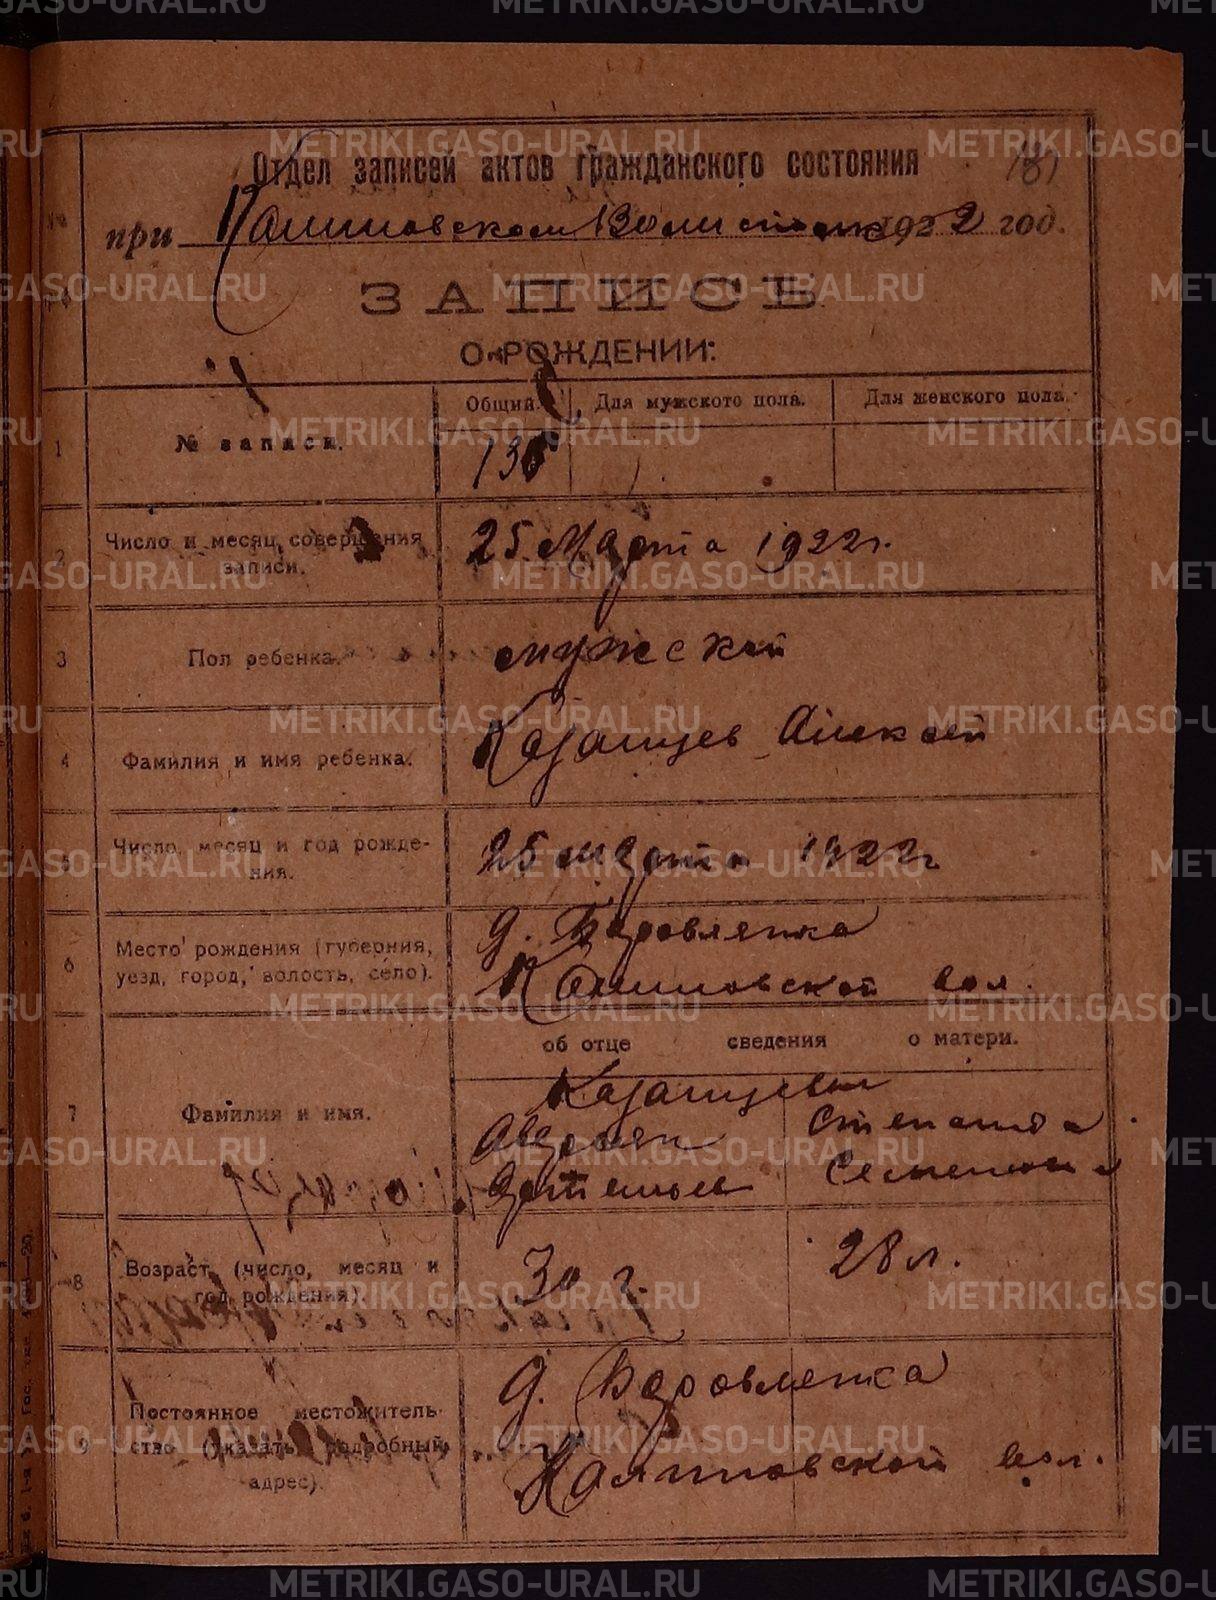 METRIKI.GASO-URAL.RU
Отдел записей актов гражданского состояния
181
при Калиновском Волисполк 1922 год.
ЗАПИСЬ
О РОЖДЕНИИ:
1 № записи. Общий. Для мужского пола. Для женского пола.
2 Число и месяц совершения записи. 25 Марта 1922 г.
3 Пол ребенка. мужской
4 Фамилия и имя ребенка. Казанцев Алексей
5 Число, месяц и год рожде-
ния. 25 марта 1922 г
6 Место рождения (губерния, д. Боровлянка
уезд, город, волость, село). Калиновской вол.
об отце сведения о матери.
7 Фамилия и имя. Казанцевы
Аверьян Степанида
Артемьев Семеновна
8 Возраст (число, месяц и
год рождения). 30 г. 28 л.
9 Постоянное местожитель-
ство (указать подробный
адрес). д. Боровлянка
Калиновской вол.